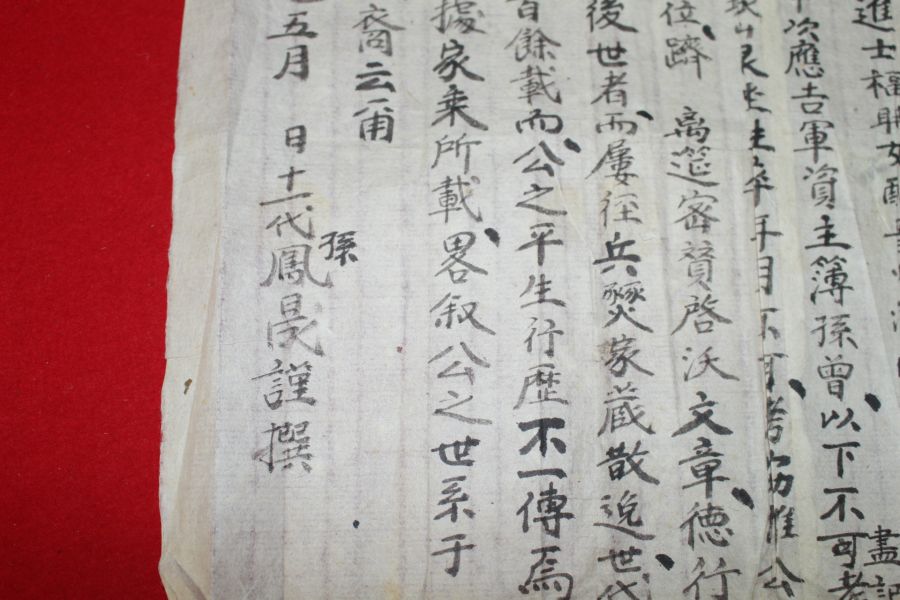 進士
次應吉軍資主簿孫曾以下不可考
卒年月不可考窃惟公
位躋 离筵密賛啓沃文章德行
後世者而屢徑兵燹家蔵散逸世代
百餘載而公之平生行歴不一傳焉
據家乘所載畧叙公之世系于
裔云
五月 日十一代孫鳳晟謹撰